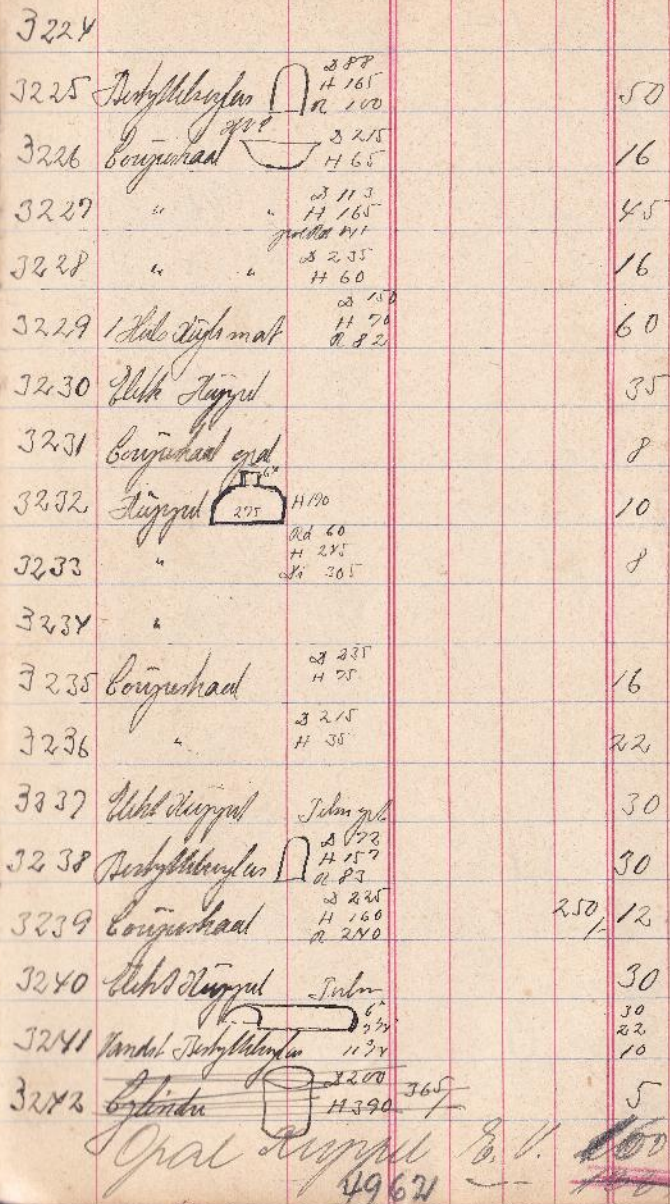 3224
3225 Beskyttelsesglas D 88 H 165 R 100 50
3226 Coupeskaal opal D 215 H 65 16
3227 " " D 113 H 165 45
3228 " " D 235 H 60 16
3229 1 Hals Kugle mat D 150 H 70 R 82 60
3230 Elekt Kuppel 35
3231 Coupeskaal opal 8
3232 Kuppel 275 H 190 10
3233 " Rd 60 H 245 Di 305 8
3234 "
3235 Coupeskaal D 235 H 75 16
3236 " D 215 H 35 22
3237 Elekt Kuppel 30
3238 Beskyttelsesglas D 72 H 157 R 83 30
3239 Coupeskaal D 225 H 160 R 240 250/- 12
3240 Elekt Kuppel 30
3241 Vandst Beskyttelsesglas 6" 30 22 10
3242 Cylindre D 200 H 390 365/- 5
Opal Kuppel E. V.
4962